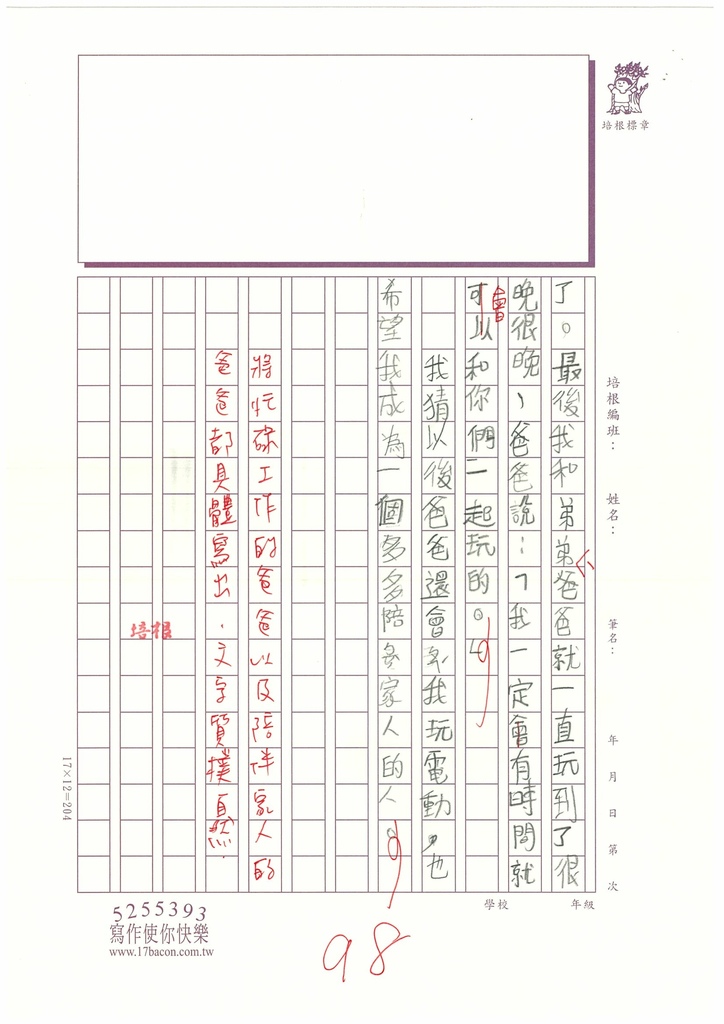 培根標章
培根編班：
姓名：
筆名：
年 月 日 第 次
學校
年級
了。最後我和弟弟爸爸就一直玩到了很
晚很晚，爸爸說：「我一定會有時間就
會
可以和你們一起玩的。」
我猜以後爸爸還會和我玩電動，也
希望我成為一個多多陪家人的人。
將忙碌工作的爸爸以及陪伴家人的
爸爸都具體寫出，文字質樸自然。
培根
17×12=204
98
5255393
寫作使你快樂
www.17bacon.com.tw